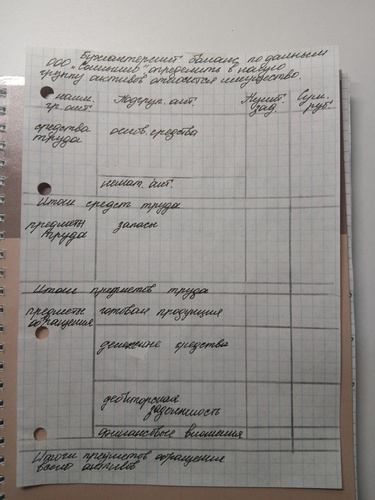 Бухгалтерский баланс по данным
ООО "Солнышко" определить в какую
группу активов относится имущество.
наим. гр. акт. Подгруп. акт. Нумит. зад. Сум. руб.
средства труда основ. средства
немат. акт.
Итоги средств труда
предметы труда запасы
Итоги предметов труда
предметы обращения готовая продукция
денежные средства
дебиторская
задолжность
финансовые вложения
Итоги предметов обращения
всего активов